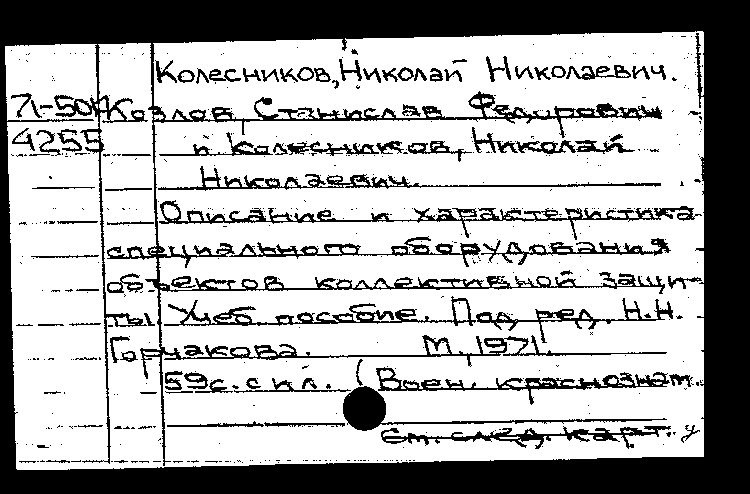 Колесников, Николай Николаевич.
71-50 Козлов, Станислав Федорович
4255 и Колесников, Николай
Николаевич.
Описание и характеристика
специального оборудования
объектов коллективной защи-
ты. Учеб. пособие. Под ред. Н.Н.
Горчакова. М., 1971.
59с. с ил. (Воен. краснознам.
См. след. карт.